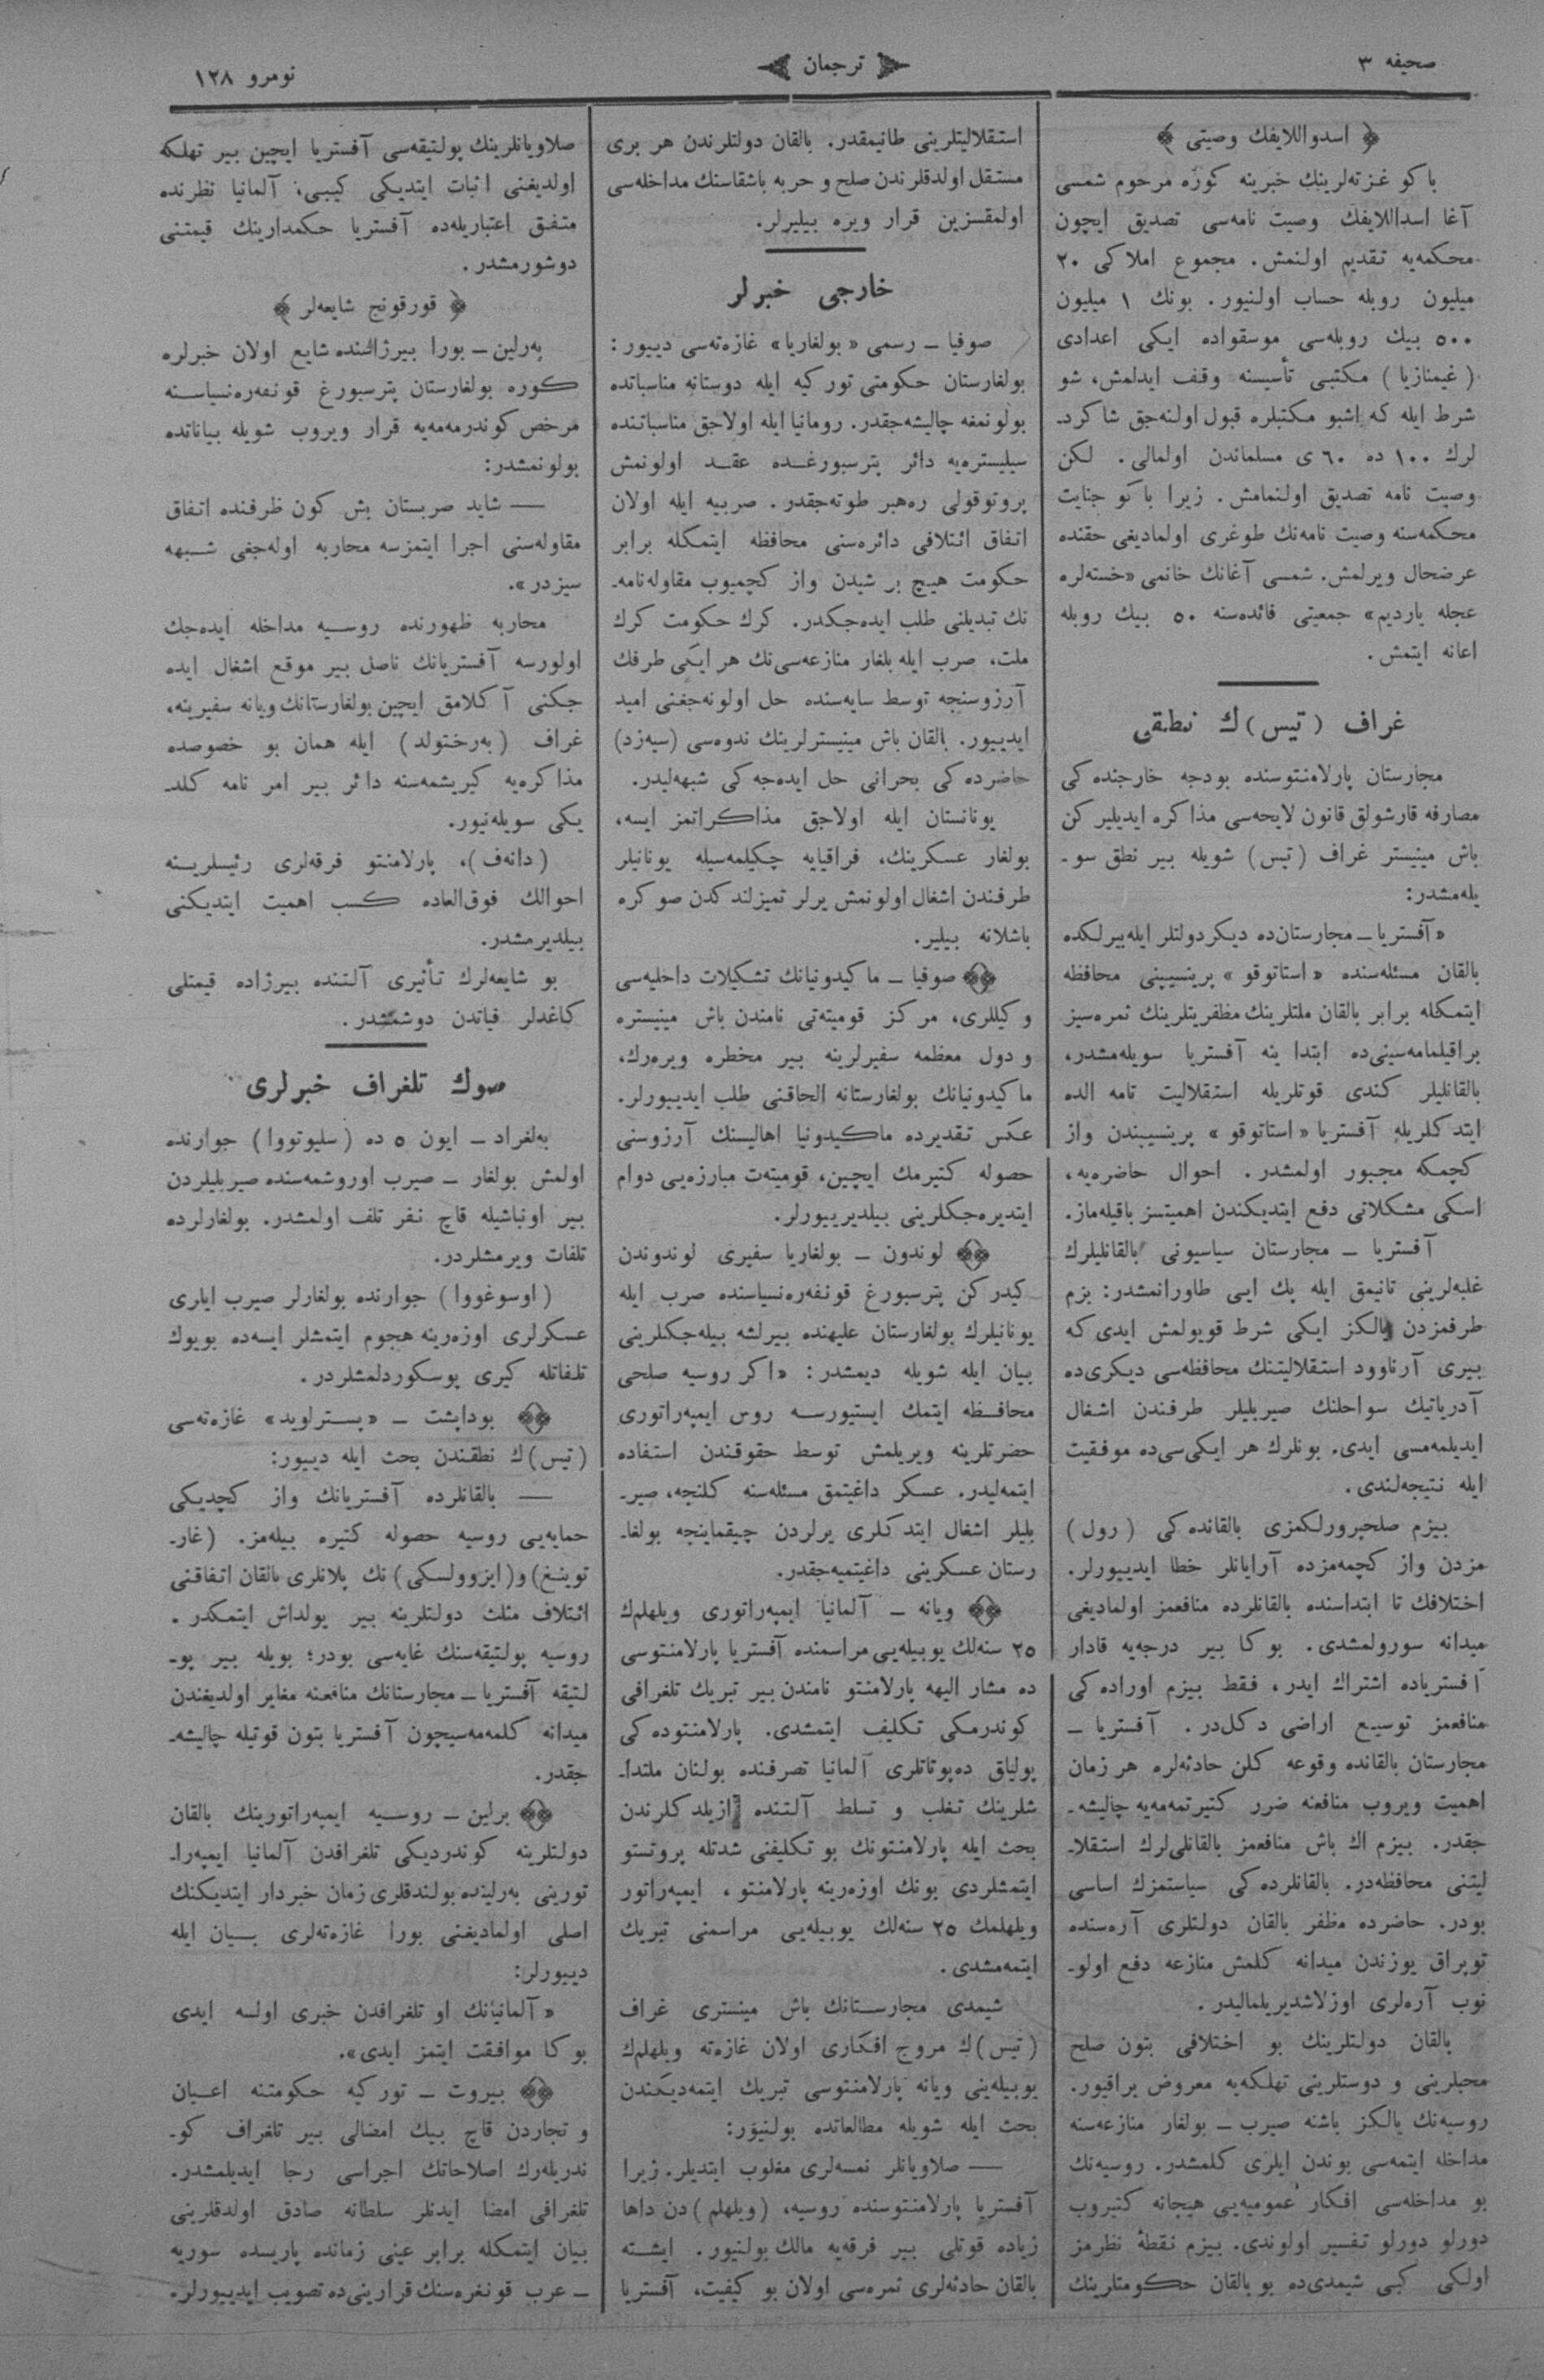 صحیفه ۳
ترجمان
نومرو ۱۲۸
﴿ اسدواللایفك وصیتی ﴾
باكو غزته‌لرینك خبرینه كوره مرحوم شمسی
آغا اسداللایفك وصیت نامه‌سی تصدیق ایچون
محكمه‌یه تقدیم اولنمش. مجموع املاكی ۲۰
میلیون روبله حساب اولنیور. بونك ۱ میلیون
۵۰۰ بیك روبله‌سی موسقواده ایكی اعدادی
(غیمنازیا) مكتبی تأسیسنه وقف ایدلمش، شو
شرط ایله كه اشبو مكتبلره قبول اولنه‌جق شاكردـ
لرك ۱۰۰ ده ۶۰ ی مسلماندن اولمالی. لكن
وصیت نامه تصدیق اولنمامش. زیرا باكو جنایت
محكمه‌سنه وصیت نامه‌نك طوغری اولمادیغی حقنده
عرضحال ویرلمش. شمسی آغانك خانمی «خسته‌لره
عجله یاردیم» جمعیتی فائده‌سنه ۵۰ بیك روبله
اعانه ایتمش.
غراف (تیس)ك نطقی
مجارستان پارلامنتوسنده بودجه خارجنده‌كی
مصارفه قارشولق قانون لایحه‌سی مذاكره ایدیلیركن
باش مینیستر غراف (تیس) شویله بیر نطق سوـ
یله‌مشدر:
«آفستریا ـ مجارستان‌ده دیكر دولتلر ایله بیرلكده
بالقان مسئله‌سنده «استاتوقو» پرینسیپنی محافظه
ایتمكله برابر بالقان ملتلرینك مظفریتلرینك ثمره‌سیز
براقیلمامه‌سینی‌ده ابتدا ینه آفستریا سویله‌مشدر،
بالقانلیلر كندی قوتلریله استقلالیت تامه الده
ایتدكلریله آفستریا «استاتوقو» پرینسیپندن واز
كچمكه مجبور اولمشدر. احوال حاضره‌یه،
اسكی مشكلاتی دفع ایتدیكندن اهمیتسز باقیله‌ماز.
آفستریا ـ مجارستان سیاسیونی بالقانلیلرك
غلبه‌لرینی تانیمق ایله پك ایی طاورانمشدر: بزم
طرفمزدن یالكز ایكی شرط قویولمش ایدی كه
بیری آرناوود استقلالیتنك محافظه‌سی دیكری‌ده
آدریاتیك سواحلنك صیربلیلر طرفندن اشغال
ایدیلمه‌مسی ایدی. بونلرك هر ایكی‌سی‌ده موفقیت
ایله نتیجه‌لندی.
بیزم صلحپرورلكمزی بالقانده‌كی (رول)
مزدن واز كچمه‌مزده آرایانلر خطا ایدییورلر.
اختلافك تا ابتداسنده بالقانلرده منافعمز اولمادیغی
میدانه سورولمشدی. بوكا بیر درجه‌یه قادار
آفستریاده اشتراك ایدر، فقط بیزم اوراده‌كی
منافعمز توسیع اراضی دكل‌در. آفستریا ـ
مجارستان بالقانده وقوعه كلن حادثه‌لره هر زمان
اهمیت ویروب منافعنه ضرر كتیرتمه‌مه‌یه چالیشه‌ـ
جقدر. بیزم اك باش منافعمز بالقانلی‌لرك استقلاـ
لیتنی محافظه‌در. بالقانلرده‌كی سیاستمزك اساسی
بودر. حاضرده مظفر بالقان دولتلری آره‌سنده
توپراق یوزندن میدانه كلمش منازعه دفع اولوـ
نوب آره‌لری اوزلاشدیریلمالیدر.
بالقان دولتلرینك بو اختلافی بتون صلح
محبلرینی و دوستلرینی تهلكه‌یه معروض براقیور.
روسیه‌نك یالكز باشنه صیرب ـ بولغار منازعه‌سنه
مداخله ایتمه‌سی بوندن ایلری كلمشدر. روسیه‌نك
بو مداخله‌سی افكار عمومیه‌یی هیجانه كتیروب
دورلو دورلو تفسیر اولوندی. بیزم نقطۀ نظرمز
اولكی كبی شیمدی‌ده بو بالقان حكومتلرینك
استقلالیتلرینی طانیمقدر. بالقان دولتلرندن هر بری
مستقل اولدقلرندن صلح و حربه باشقاسنك مداخله‌سی
اولمقسزین قرار ویره بیلیرلر.
خارجی خبرلر
صوفیا ـ رسمی «بولغاریا» غازه‌ته‌سی دییور:
بولغارستان حكومتی توركیه ایله دوستانه مناسباتده
بولونمغه چالیشه‌جقدر. رومانیا ایله اولاجق مناسباتنده
سیلیستره‌یه دائر پترسبورغـده عقـد اولونمش
پروتوقولی ره‌هبر طوته‌جقدر. صربیه ایله اولان
اتفاق ائتلافی دائره‌سنی محافظه ایتمكله برابر
حكومت هیچ بر شیدن واز كچمیوب مقاوله‌نامه‌ـ
نك تبدیلنی طلب ایده‌جكدر. كرك حكومت كرك
ملت، صرب ایله بلغار منازعه‌سی‌نك هر ایكی طرفك
آرزوسنجه توسط سایه‌سنده حل اولونه‌جغنی امید
ایدییور. بالقان باش مینیسترلرینك ندوه‌سی (سیه‌زد)
حاضرده‌كی بحرانی حل ایده‌جه‌كی شبهه‌لیدر.
یونانستان ایله اولاجق مذاكراتمز ایسه،
بولغار عسكرینك، فراقیایه چكیلمه‌سیله یونانیلر
طرفندن اشغال اولونمش یرلر تمیزلندكدن صوكره
باشلانه بیلیر.
صوفیا ـ ماكیدونیانك تشكیلات داخلیه‌سی
وكیللری، مركز قومیته‌تی نامندن باش مینیستره
و دول معظمه سفیرلرینه بیر مخطره ویره‌رك،
ماكیدونیانك بولغارستانه الحاقنی طلب ایدییورلر.
عكس تقدیرده ماكیدونیا اهالیسنك آرزوسنی
حصوله كتیرمك ایچین، قومیته‌ت مبارزه‌یی دوام
ایتدیره‌جكلرینی بیلدیرییورلر.
لوندون ـ بولغاریا سفیری لوندوندن
كیدركن پترسبورغ قونفه‌ره‌نسیاسنده صرب ایله
یونانیلرك بولغارستان علیهنده بیرلشه بیله‌جكلرینی
بیان ایله شویله دیمشدر: «اكر روسیه صلحی
محافـظه ایتمك ایستیورسـه روس ایمپه‌راتوری
حضرتلرینه ویریلمش توسط حقوقندن استفاده
ایتمه‌لیدر. عسكر داغیتمق مسئله‌سنه كلنجه، صیرـ
بلیلر اشغال ایتدكلری یرلردن چیقماینجه بولغاـ
رستان عسكرینی داغیتمیه‌جقدر.
ویانه ـ آلمانیا ایمپه‌راتوری ویلهلم‌ك
۲۵ سنه‌لك یوبیله‌یی مراسمنده آفستریا پارلامنتوسی
ده مشار الیهه پارلامنتو نامندن بیر تبریك تلغرافی
كوندرمكی تكلیف ایتمشدی. پارلامنتوده‌كی
پولیاق ده‌پوتاتلری آلمانیا تصرفنده بولنان ملتداـ
شلرینك تغلب و تسلط آلتنده ازیلدكلرندن
بحث ایله پارلامنتونك بو تكلیفنی شدتله پروتستو
ایتمشلردی بونك اوزه‌رینه پارلامنتو، ایمپه‌راتور
ویلهلمك ۲۵ سنه‌لك یوبیله‌یی مراسمنی تبریك
ایتمه‌مشدی.
شیمدی مجارسـتانك باش مینستری غراف
(تیس)ك مروج افكاری اولان غازه‌ته ویلهلم‌ك
یوبیله‌ینی ویانه پارلامنتوسی تبریك ایتمه‌دیكندن
بحث ایله شویله مطالعاتده بولنیور:
— صلاویانلر نمسه‌لری مغلوب ایتدیلر. زیرا
آفستریا پارلامنتوسنده روسیه، (ویلهلم)دن داها
زیاده قوتلی بیر فرقه‌یه مالك بولنیور. ایشـته
بالقان حادثه‌لری ثمره‌سی اولان بو كیفیت، آفستریا
صلاویانلرینك پولتیقه‌سی آفستریا ایچین بیر تهلكه
اولدیغنی اثبات ایتدیكی كیبی، آلمانیا نظرنده
متفق اعتباریله‌ده آفستریا حكمدارینك قیمتنی
دوشورمشدر.
﴿ قورقونج شایعه‌لر ﴾
په‌رلین ـ بورا بیرژاسنده شایع اولان خبرلره
كوره بولغارستان پترسبورغ قونفه‌ره‌نسیاسـنه
مرخص كوندرمه‌مه‌یه قرار ویروب شویله بیاناتده
بولونمشدر:
— شاید صربستان بش كون ظرفنده اتفاق
مقاوله‌سنی اجرا ایتمزسه محاربه اوله‌جغی شـبهه
سیزدر».
محاربه ظهورنده روسـیه مداخله ایده‌جك
اولورسه آفستریانك ناصل بیر موقع اشغال ایده
جكنی آكلامق ایچین بولغارستانك ویانه سفیرینه،
غراف (به‌رختولد) ایله همان بو خصوصده
مذاكره‌یه كیریشمه‌سنه دائر بیر امر نامه كلدـ
یكی سویله‌نیور.
(دانه‌ف)، پارلامنتو فرقه‌لری رئیسلرینه
احوالك فوق‌العاده كسب اهمیت ایتدیكنی
بیلدیرمشدر.
بو شایعه‌لرك تأثیری آلتنده بیرژاده قیمتلی
كاغدلر فیاتدن دوشمشدر.
صوك تلغراف خبرلری
به‌لغراد ـ ایون ۵ ده (سلیوتووا) جوارنده
اولمش بولغار ـ صیرب اوروشمه‌سنده صیربلیلردن
بیر اونباشیله قاچ نفر تلف اولمشدر. بولغارلرده
تلفات ویرمشلردر.
(اوسوغووا) جوارنده بولغارلر صیرب ایلری
عسكرلری اوزه‌رینه هجوم ایتمشلر ایسه‌ده بویوك
تلفاتله كیری پوسكوردلمشلردر.
بوداپشت ـ «پسـترلوید» غازه‌ته‌سی
(تیس)ك نطقندن بحث ایله دییور:
— بالقانلرده آفستریانك واز كچدیكی
حمایه‌یی روسیه حصوله كتیره بیله‌مز. (غارـ
توینغ) و (ایزوولسكی) نك پلانلری بالقان اتفاقنی
ائتلاف مثلث دولتلرینه بیر یولداش ایتمكدر.
روسیه پولتیقه‌سنك غایه‌سی بودر؛ بویله بیر پوـ
لتیقه آفستریا ـ مجارستانك منافعنه مغایر اولدیغندن
میدانه كلمه‌مه‌سیچون آفستریا بتون قوتیله چالیشه‌ـ
جقدر.
برلین ـ روسـیه ایمپه‌راتورینك بالقان
دولتلرینه كوندردیكی تلغرافدن آلمانیا ایمپه‌راـ
تورینی به‌رلینده بولندقلری زمان خبردار ایتدیكنك
اصلی اولمادیغنی بورا غازه‌ته‌لری بـیان ایله
دییورلر:
«آلمانیانك او تلغرافدن خبری اولسه ایدی
بوكا موافقت ایتمز ایدی».
بیروت ـ توركیه حكومتنه اعـیان
و تجاردن قاچ بیك امضالی بیر تلغراف كوـ
ندریله‌رك اصلاحاتك اجراسی رجا ایدیلمشدر.
تلغرافی امضا ایدنلر سلطانه صادق اولدقلرینی
بیان ایتمكله برابر عینی زمانده پاریسده سوریه
ـ عرب قونغره‌سنك قرارینی‌ده تصویب ایدییورلر.